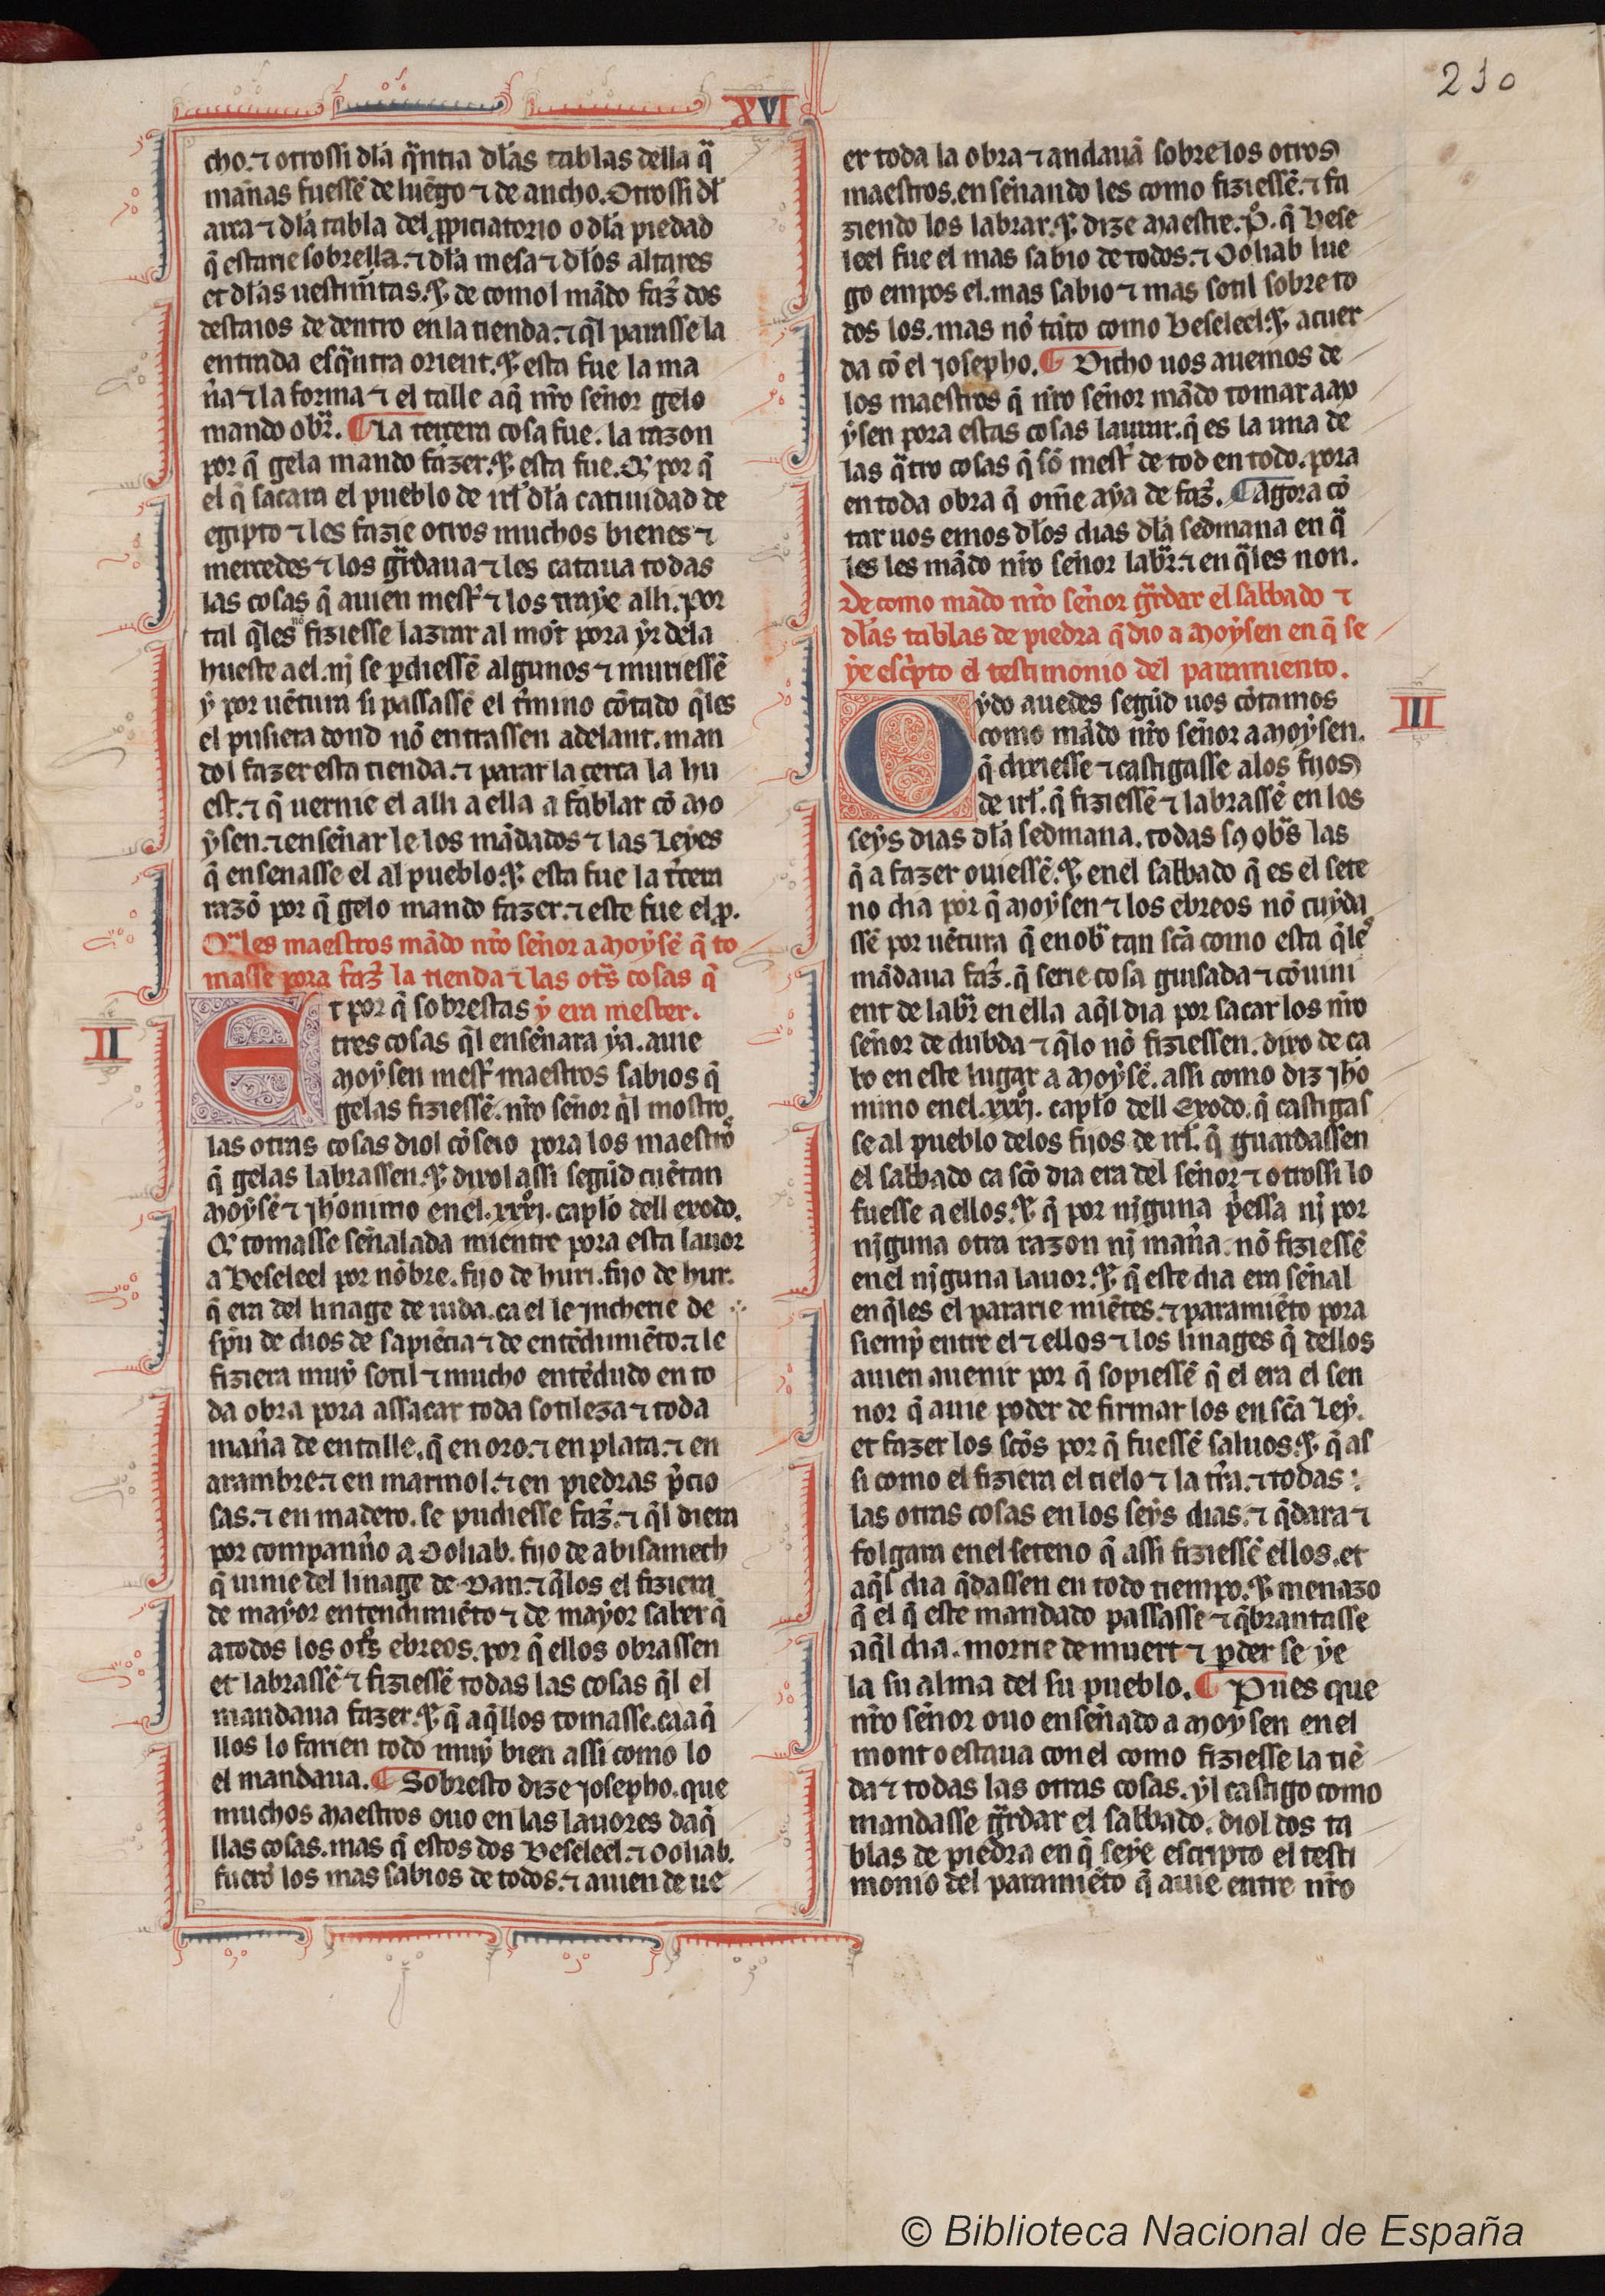 XVI
210
cho. ⁊ otrossi dĺa q̃ntia dĺas tablas della q̃
mañas fuessẽ de luẽgo ⁊ de ancho. Otrossi dĺ
arca ⁊ dĺa tabla del ꝓpiciatorio o dĺa piedad
q̃ estarie sobrella. ⁊ dĺa mesa ⁊ dĺos altares
et dĺas uestim̃tas. ⁊ de comol mãdo faz̃ dos
destaios de dentro en la tienda. ⁊ q̃l parasse la
entrada esq̃ntra orient. ⁊ esta fue la ma
ña ⁊ la forma ⁊ el talle aq̃ nr̃o señor gelo
mando obr̃. ¶ La tercera cosa fue. la razon
por q̃ gela mando fazer. ⁊ esta fue. Q̃ por q̃
el q̃ sacara el pueblo de irĺ dĺa catiuidad de
egipto ⁊ les fazie otros muchos bienes ⁊
mercedes ⁊ los gr̃daua ⁊ les cataua todas
las cosas q̃ auien mest̃ ⁊ los traye alli. por
tal q̃les nõ fiziesse lazrar al mõt pora yr dela
hueste a el. nj se ꝑdiessẽ algunos ⁊ muriessẽ
y por uẽtura si passassẽ el t̃mino cõtado q̃les
el pusiera dond nõ entrassen adelant. man
dol fazer esta tienda. ⁊ parar la cerca la hu
est. ⁊ q̃ uernie el alli a ella a fablar cõ mo
ysen. ⁊ enseñar le los mãdados ⁊ las Leyes
q̃ ensenasse el al pueblo. ⁊ esta fue la t̃cera
razõ por q̃ gelo mando fazer. ⁊ este fue el ꝓ.
Q̃les maestros mãdo nr̃o señor a moysẽ q̃ to
masse pora faz̃ la tienda ⁊ las ot̃s cosas q̃
II
Et por q̃ sobrestas y era mester.
tres cosas q̃l enseñara ya. auie
moysen mest̃ maestros sabios q̃
gelas fiziessẽ. nr̃o señor q̃l mostro
las otras cosas diol cõseio pora los maestros
q̃ gelas labrassen. ⁊ dixol assi segũd cuẽtan
moysẽ ⁊ jhonimo enel .xxxj. capĺo dell exodo.
Q̃ tomasse señalada mientre pora esta lauor
a Beseleel por nõbre. fijo de huri. fijo de hur.
q̃ era del linage de iuda. ca el le jncherie de
sp̃u de dios de sapiẽcia ⁊ de entẽdimiẽto. ⁊ le
fiziera muy sotil ⁊ mucho entẽdudo en to
da obra pora assacar toda sotileza ⁊ toda
maña de entalle. q̃ en oro. ⁊ en plata. ⁊ en
arambre. ⁊ en marmol. ⁊ en piedras p̃cio
sas. ⁊ en madero. se pudiesse faz̃. ⁊ q̃l diera
por companño a Ooliab. fijo de abisamech
q̃ uinie del linage de Dan. ⁊ q̃los el fiziera
de mayor entendimiẽto ⁊ de mayor saber q̃
a todos los ot̃s ebreos. por q̃ ellos obrassen
et labrassẽ ⁊ fiziessẽ todas las cosas q̃l el
mandaua fazer. ⁊ q̃ aq̃llos tomasse. ca aq̃
llos lo farien todo muy bien assi como lo
el mandaua. ¶ Sobresto dize josepho. que
muchos maestros ouo en las lauores daq̃
llas cosas. mas q̃ estos dos Beseleel. ⁊ Ooliab.
fuerõ los mas sabios de todos. ⁊ auien de ue
er toda la obra ⁊ andauã sobre los otros
maestros. enseñando les como fiziessẽ. ⁊ fa
ziendo los labrar. ⁊ dize maestre. P̃. q̃ Bese
leel fue el mas sabio de todos. ⁊ Ooliab lue
go empos el. mas sabio ⁊ mas sotil sobre to
dos los. mas nõ tãto como Beseleel. ⁊ acuer
da cõ el josepho. ¶ Dicho uos auemos de
los maestros q̃ nr̃o señor mãdo tomar a mo
ysen pora estas cosas laurar. q̃ es la una de
las q̃tro cosas q̃ sõ mest̃ de tod en todo. pora
en toda obra q̃ om̃e aya de faz̃. ¶ Agora cõ
tar uos emos dĺos dias dĺa sedmana en q̃
les les mãdo nr̃o señor labr̃. ⁊ en q̃les non.
De como mãdo nr̃o señor gr̃dar el sabbado ⁊
dĺas tablas de piedra q̃ dio a moysen en q̃ se
ye esc̃pto el testimonio del paramiento.
III
Oydo auedes segũd uos cõtamos
como mãdo nr̃o señor a moysen.
q̃ dixiesse ⁊ castigasse a los fijos
de irĺ. q̃ fiziessẽ ⁊ labrassẽ en los
seys dias dĺa sedmana. todas sus ob̃s las
q̃ a fazer ouiessẽ. ⁊ enel sabbado q̃ es el sete
no dia por q̃ moysen ⁊ los ebreos nõ cuyda
ssẽ por uẽtura q̃ en ob̃ tan sc̃a como esta q̃les
mãdaua faz̃. q̃ serie cosa guisada ⁊ cõuini
ent de labr̃ en ella aq̃l dia por sacar los nr̃o
señor de dubda ⁊ q̃lo nõ fiziessen. dixo de ca
bo en este lugar a moysẽ. assi como diz jho
nimo enel .xxxj. capĺo dell Exodo. q̃ castigas
se al pueblo delos fijos de irĺ. q̃ guardassen
el sabbado ca sc̃o dia era del señor ⁊ otrossi lo
fuesse a ellos. ⁊ q̃ por njguna p̃essa nj por
njguna otra razon nj maña. nõ fiziessẽ
enel njguna lauor. ⁊ q̃ este dia era señal
en q̃les el pararie miẽtes. ⁊ paramiẽto pora
siemp̃ entre el ⁊ ellos ⁊ los linages q̃ dellos
auien auenir por q̃ sopiessẽ q̃ el era el sen
nor q̃ auie poder de firmar los en sc̃a Ley.
et fazer los sc̃os por q̃ fuessẽ saluos. ⁊ q̃ as
si como el fiziera el cielo ⁊ la tr̃a. ⁊ todas
las otras cosas en los seys dias. ⁊ q̃dara ⁊
folgara enel seteno q̃ assi fiziessẽ ellos. et
aq̃l dia q̃dassen en todo tiempo. ⁊ menazo
q̃ el q̃ este mandado passasse ⁊ q̃brantasse
aq̃l dia. morrie de muert ⁊ ꝑder se ye
la su alma del su pueblo. ¶ Pues que
nr̃o señor ouo enseñado a moysen en el
mont o estaua con el como fiziesse la tiẽ
da ⁊ todas las otras cosas. yl castigo como
mandasse gr̃dar el sabbado. diol dos ta
blas de piedra en q̃ seye escripto el testi
monio del paramiẽto q̃ auie entre nr̃o
© Biblioteca Nacional de España